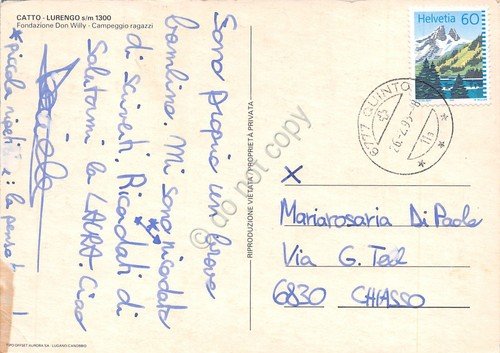 CATTO - LURENGO s/m 1300
Fondazione Don Willy - Campeggio ragazzi
Sono proprio un brava
bambina. Mi sono ricordata
di scriverti. Ricordati di
Salutarmi la LAURA. Ciao
* piccola
è la penso!
RIPRODUZIONE VIETATA / PROPRIETÀ PRIVATA
TIPO OFFSET AURORA SA - LUGANO CANOBBIO
Helvetia 60
6777 QUINTO
do not copy
X
Mariarosaria Di Paola
Via G.
6830 CHIASSO